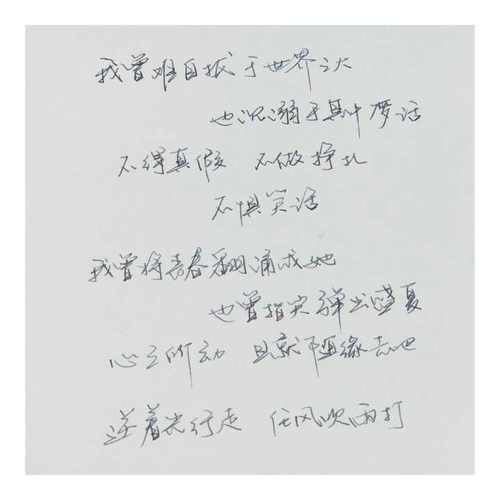 我曾难自拔于世界之大
也沉溺于其中梦话
不得真假 不做挣扎
不惧笑话
我曾将青春翻涌成她
也曾指尖弹出盛夏
心之所动 且就随缘去吧
逆着光行走 任风吹雨打